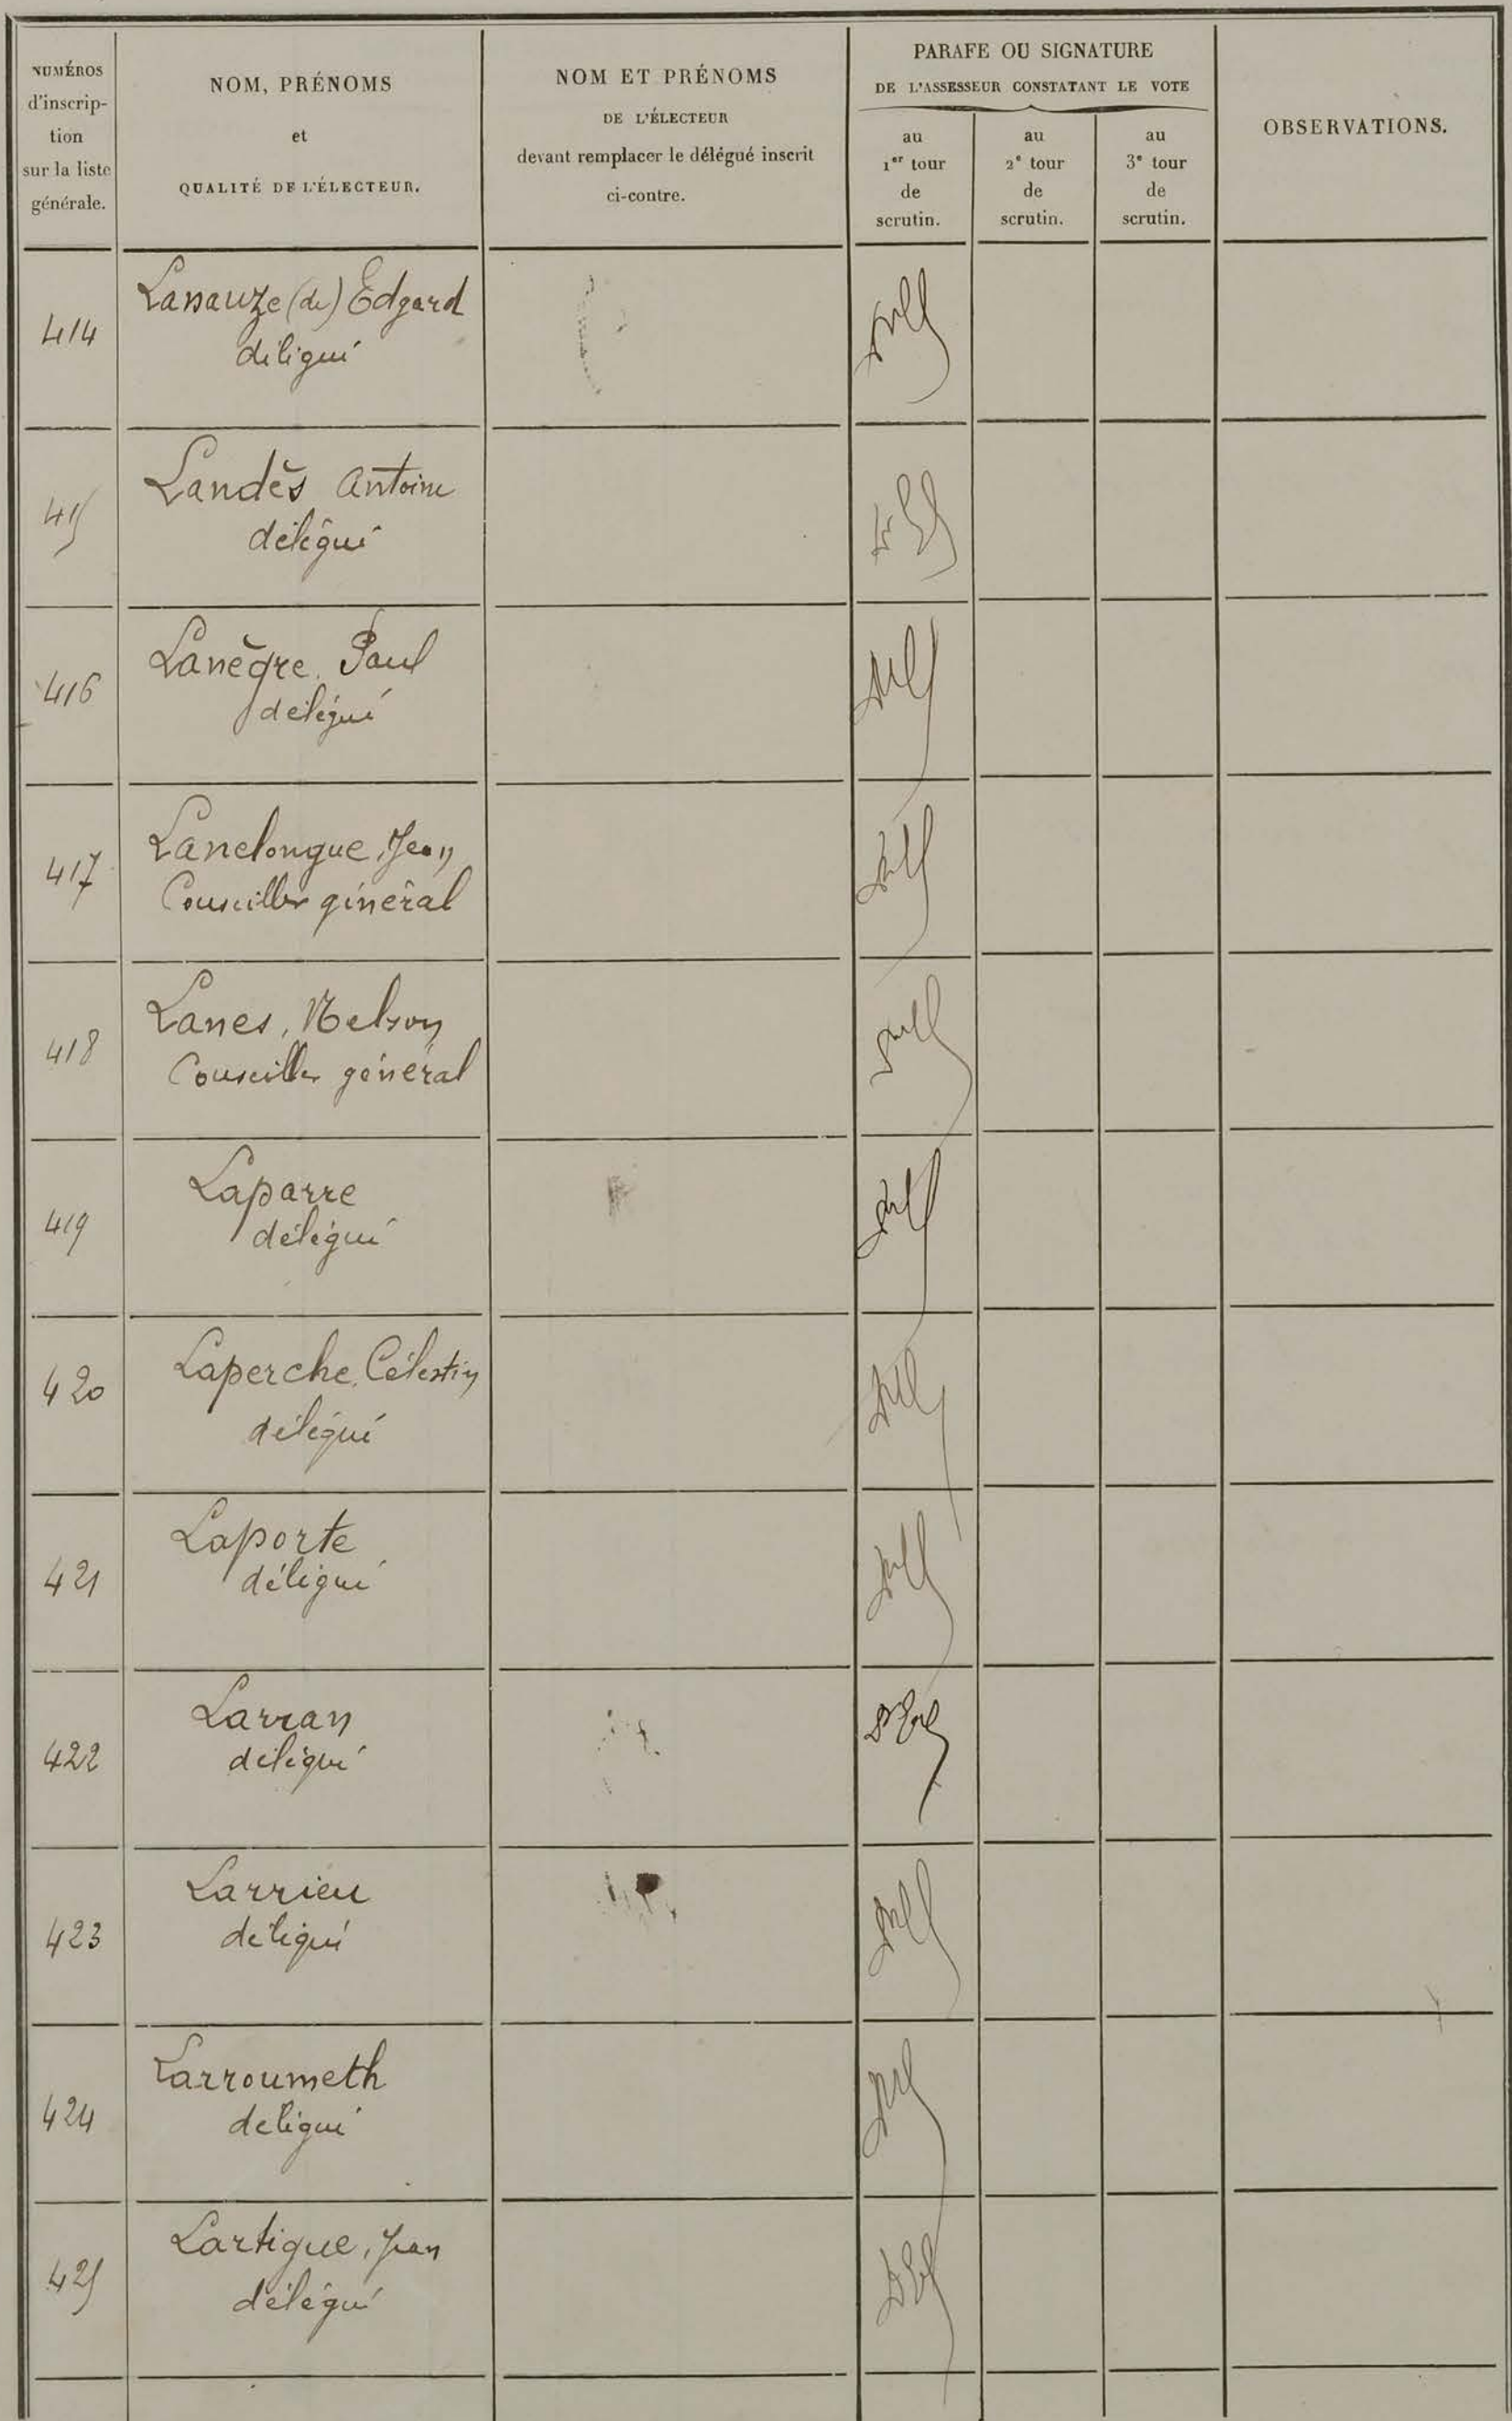 NUMÉROS
d'inscrip-
tion
sur la liste
générale.
NOM, PRÉNOMS
et
QUALITÉ DE L'ÉLECTEUR.
NOM ET PRÉNOMS
DE L'ÉLECTEUR
devant remplacer le délégué inscrit
ci-contre.
PARAFE OU SIGNATURE
DE L'ASSESSEUR CONSTATANT LE VOTE
au
1er tour
de
scrutin.
au
2e tour
de
scrutin.
au
3e tour
de
scrutin.
OBSERVATIONS.
414
Lanauze (de) Edgard
délégué
415
Landès Antoine
délégué
416
Lanègre, Paul
délégué
417
Lanelongue, Jean
Conseiller général
418
Lanes, Nelson
Conseiller général
419
Laparre
délégué
420
Laperche, Célestin
délégué
421
Laporte
délégué
422
Larran
délégué
423
Larrieu
délégué
424
Larroumeth
délégué
425
Lartigue, Jean
délégué